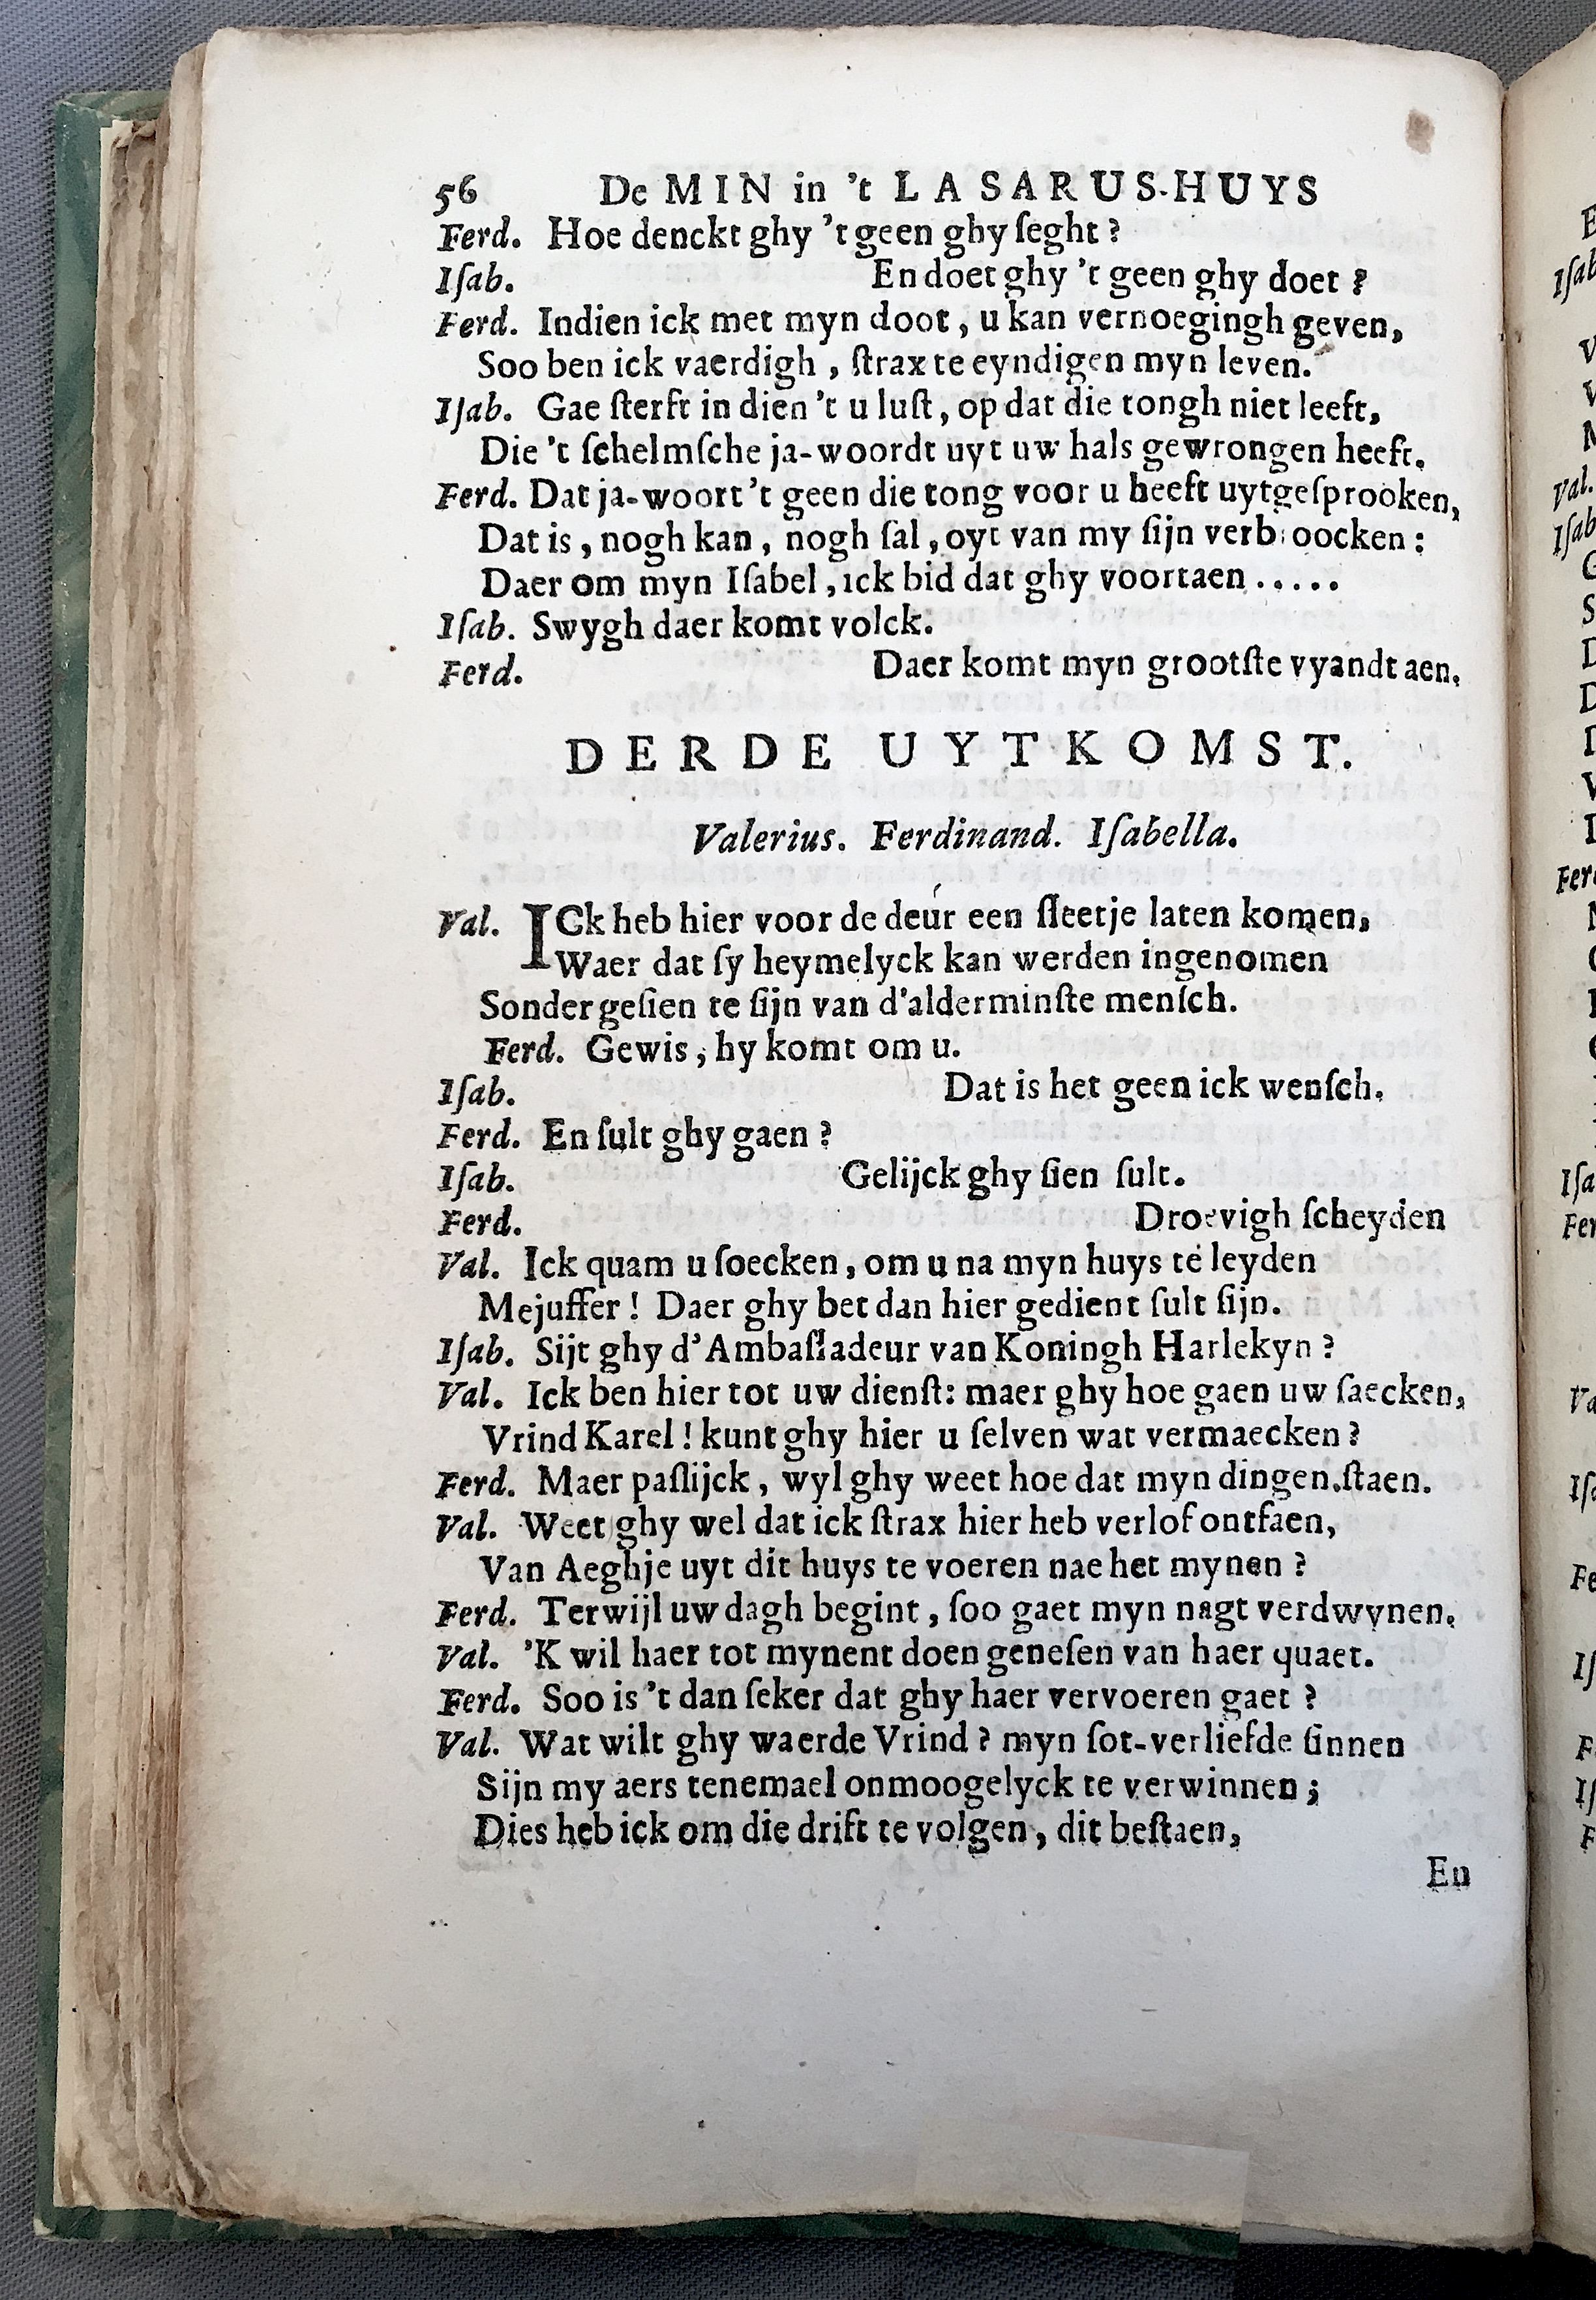 56 De MIN in 't LASARUS-HUYS
Ferd. Hoe denckt ghy 't geen ghy ſeght?
Iſab. En doet ghy 't geen ghy doet?
Ferd. Indien ick met myn doot, u kan vernoegingh geven,
Soo ben ick vaerdigh, ſtrax te eyndigen myn leven.
Iſab. Gae ſterft in dien 't u luſt, op dat die tongh niet leeft,
Die 't ſchelmſche ja-woordt uyt uw hals gewrongen heeft.
Ferd. Dat ja-woort 't geen die tong voor u heeft uytgeſprooken,
Dat is, nogh kan, nogh ſal, oyt van my ſijn verbroocken:
Daer om myn Iſabel, ick bid dat ghy voortaen.....
Iſab. Swygh daer komt volck.
Ferd. Daer komt myn grootſte vyandt aen.
DERDE UYTKOMST.
Valerius. Ferdinand. Iſabella.
Val. ICk heb hier voor de deur een ſleetje laten komen,
Waer dat ſy heymelyck kan werden ingenomen
Sonder geſien te ſijn van d'alderminſte menſch.
Ferd. Gewis, hy komt om u.
Iſab. Dat is het geen ick wenſch.
Ferd. En ſult ghy gaen?
Iſab. Gelijck ghy ſien ſult.
Ferd. Droevigh ſcheyden
Val. Ick quam u ſoecken, om u na myn huys te leyden
Mejuffer! Daer ghy bet dan hier gedient ſult ſijn.
Iſab. Sijt ghy d'Ambaſſadeur van Koningh Harlekyn?
Val. Ick ben hier tot uw dienſt: maer ghy hoe gaen uw ſaecken,
Vrind Karel! kunt ghy hier u ſelven wat vermaecken?
Ferd. Maer paſlijck, wyl ghy weet hoe dat myn dingen.ſtaen.
Val. Weet ghy wel dat ick ſtrax hier heb verlof ontfaen,
Van Aeghje uyt dit huys te voeren nae het mynen?
Ferd. Terwijl uw dagh begint, ſoo gaet myn nagt verdwynen.
Val. 'K wil haer tot mynent doen geneſen van haer quaet.
Ferd. Soo is 't dan ſeker dat ghy haer vervoeren gaet?
Val. Wat wilt ghy waerde Vrind? myn ſot-verliefde ſinnen
Sijn my aers tenemael onmoogelyck te verwinnen;
Dies heb ick om die drift te volgen, dit beſtaen,
En